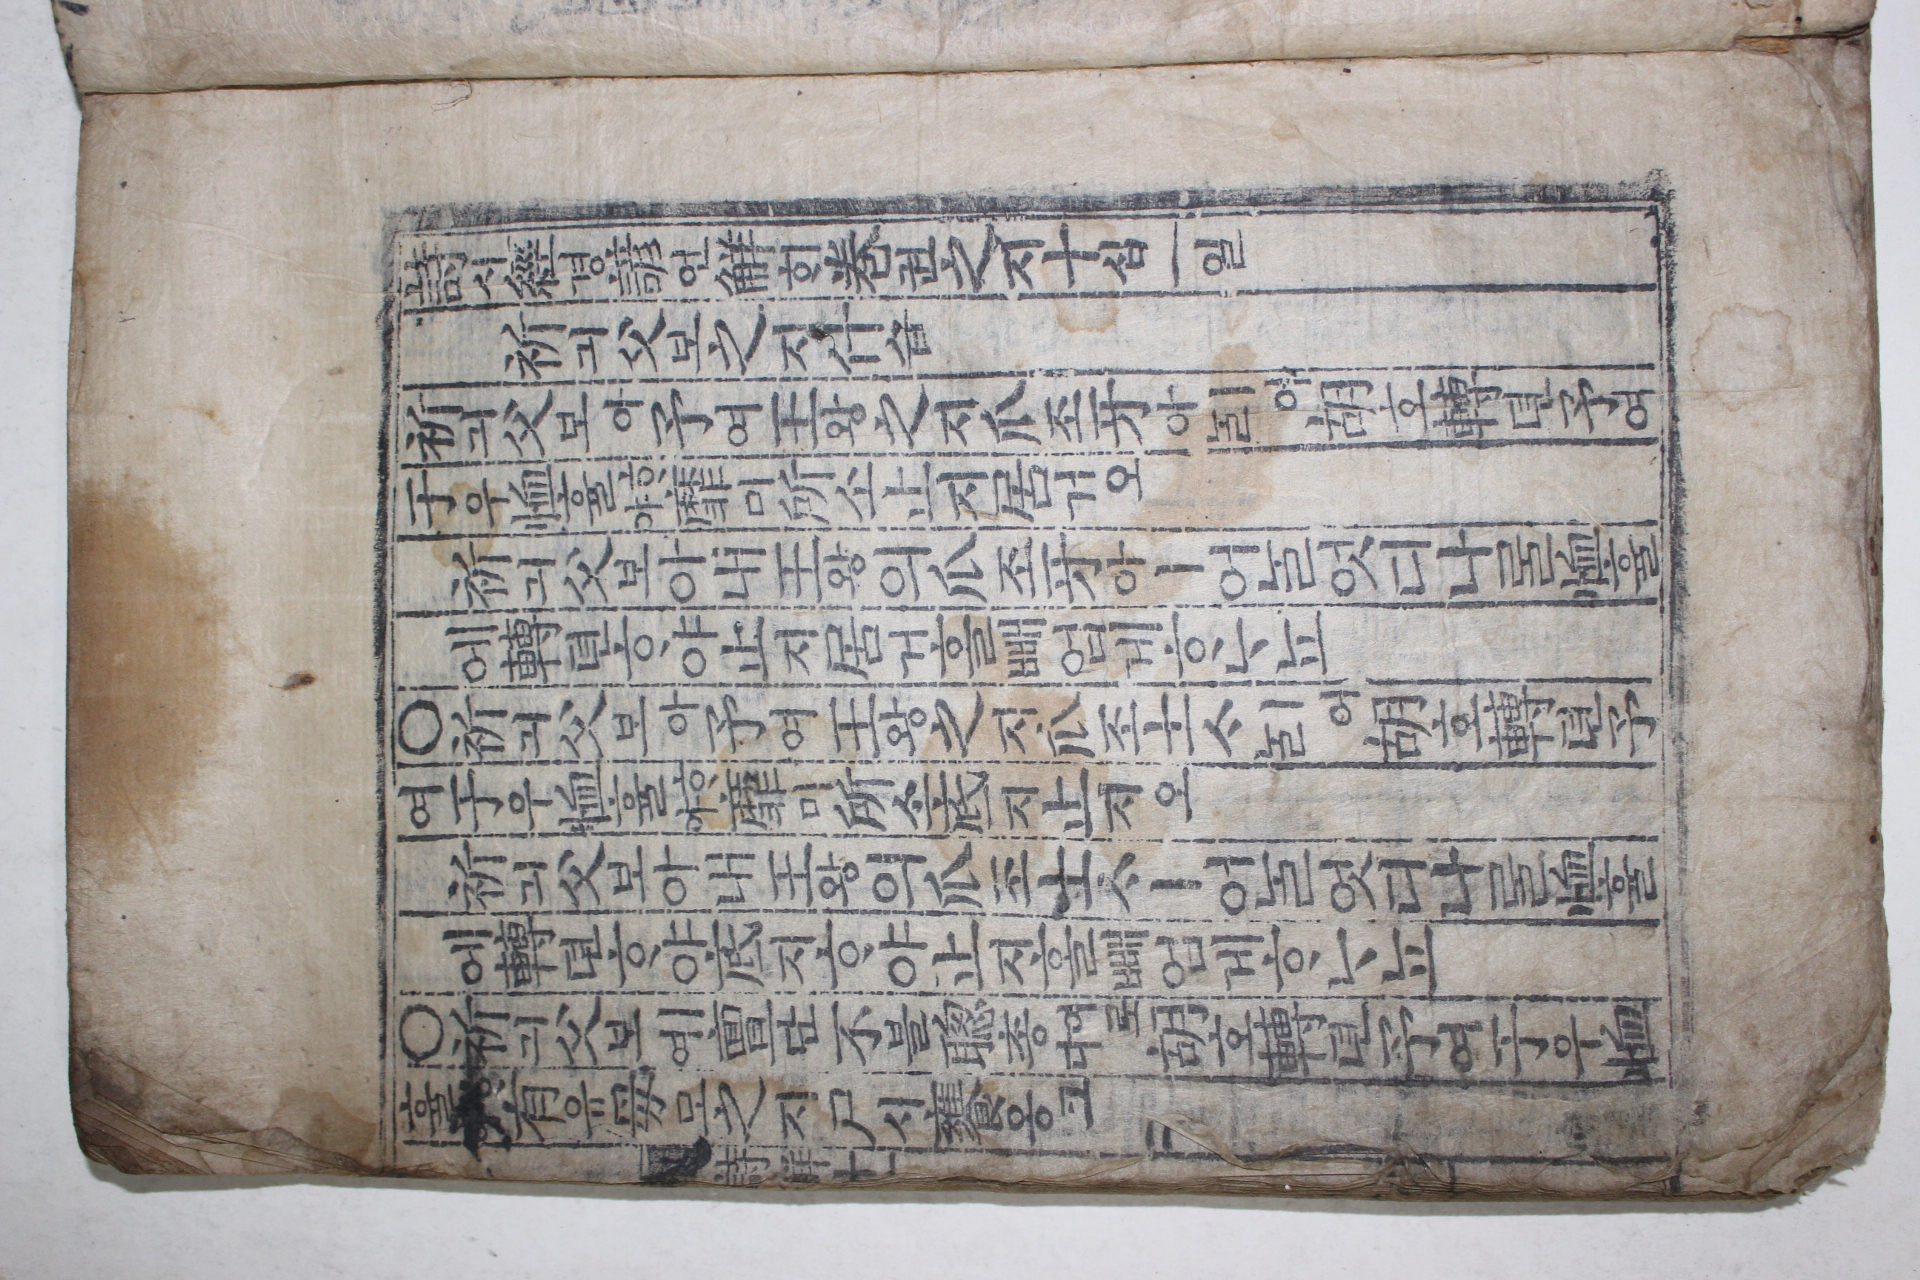 詩시經경諺언解ᄒᆡ卷권之지十십一일
祈긔父보之지什습
祈긔父보아予여王왕之지爪조牙아ㅣ어ᄂᆞᆯ胡호轉뎐予여
于우恤휼ᄒᆞ야靡미所소止지居거오
祈긔父보아내王왕의爪조牙아ㅣ어ᄂᆞᆯ엇디나ᄅᆞᆯ恤휼
에轉뎐ᄒᆞ야止지居거ᄒᆞᆯ빼업게ᄒᆞᄂᆞ뇨
○祈긔父보아予여王왕之지爪조士ᄉᆞㅣ어ᄂᆞᆯ胡호轉뎐予
여于우恤휼ᄒᆞ야靡미所소底지止지오
祈긔父보아내王왕의爪조士ᄉᆞㅣ어ᄂᆞᆯ엇디나ᄅᆞᆯ恤휼
에轉뎐ᄒᆞ야底지ᄒᆞ야止지ᄒᆞᆯ빼업게ᄒᆞᄂᆞ뇨
○祈긔父보ㅣ여亶단不블聰총이로다胡호轉뎐予여于우恤
휼有유母모之지尸시饔옹고
詩解十一